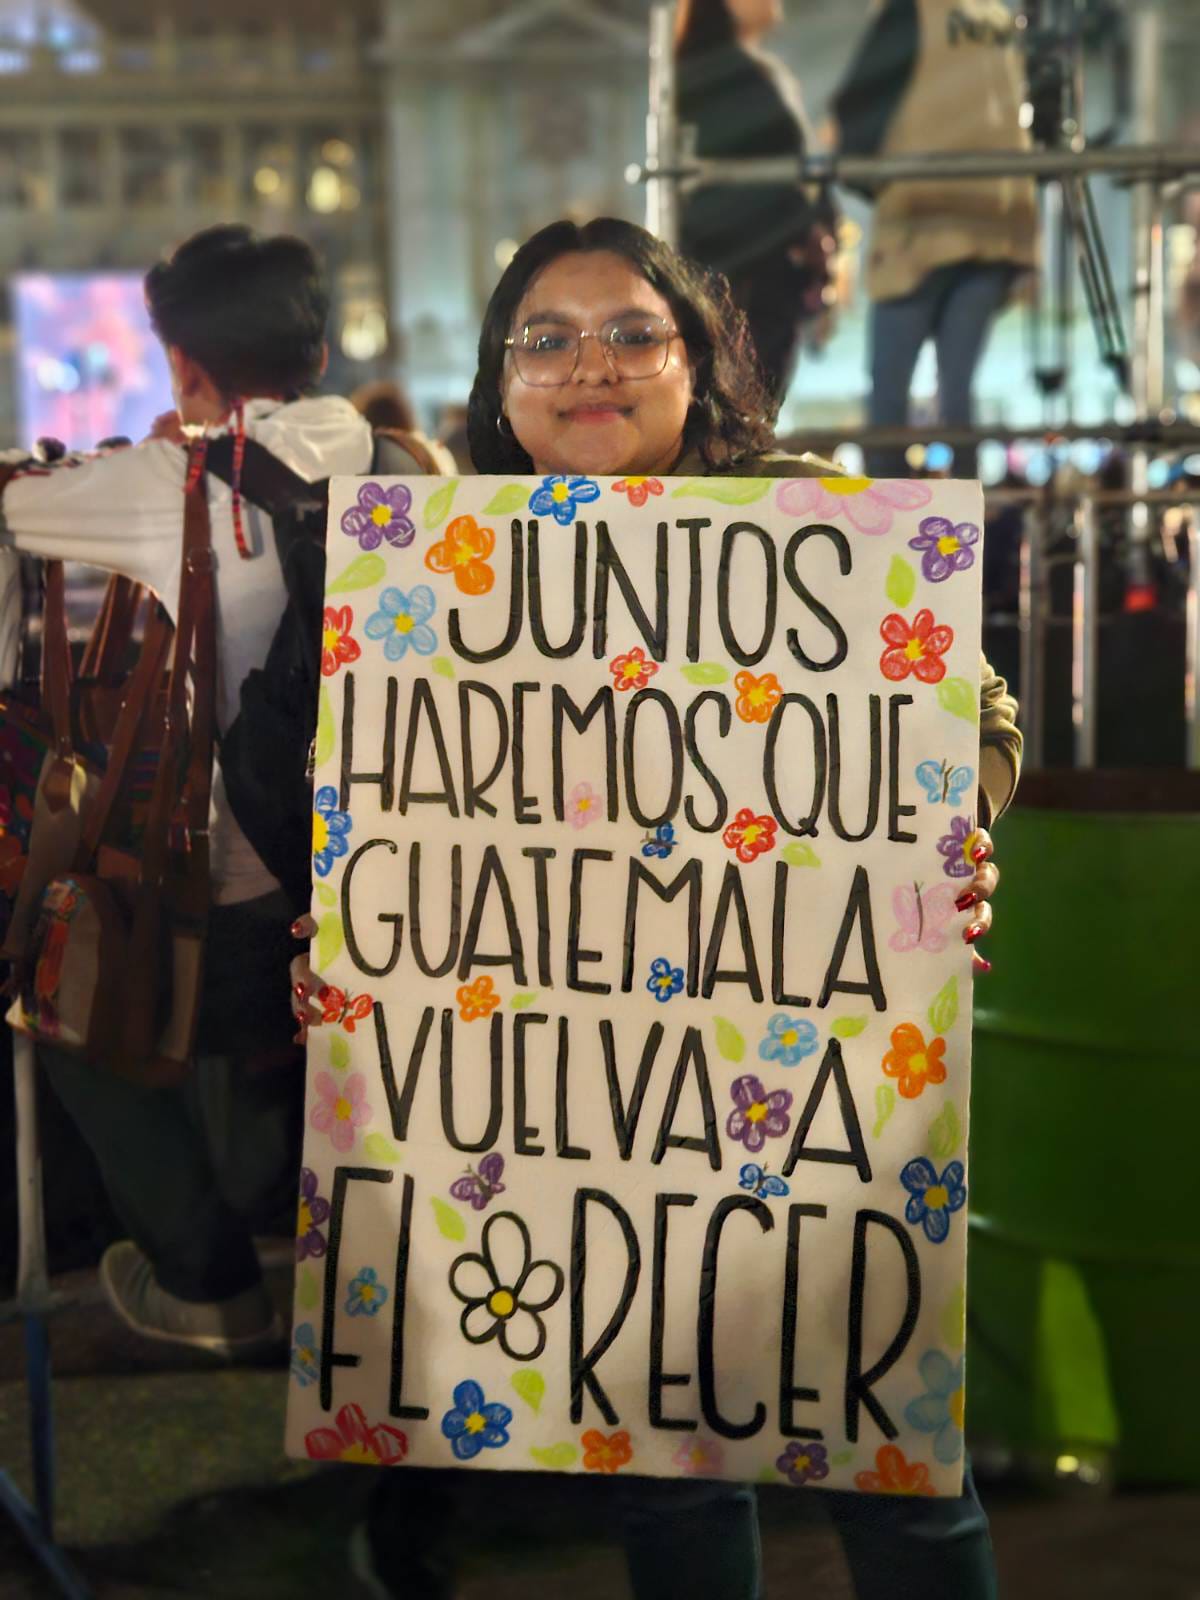 JUNTOS
HAREMOS QUE
GUATEMALA
VUELVA A
FLRECER